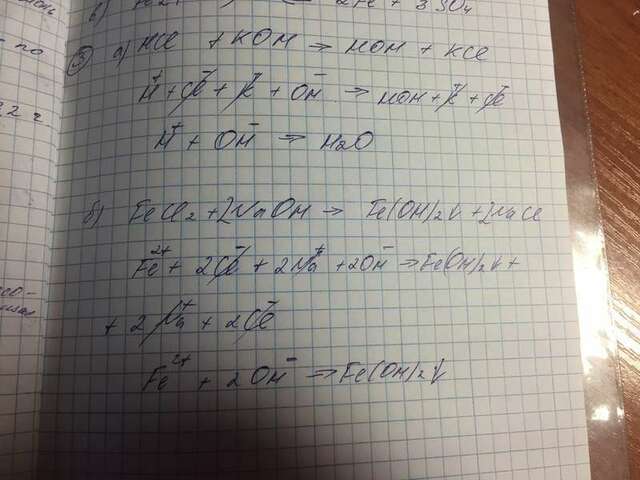 ③ а) HCl + KOH → HOH + KCl
H⁺ + Cl⁻ + K⁺ + OH⁻ → HOH + K⁺ + Cl⁻
H⁺ + OH⁻ → H₂O
б) FeCl₂ + 2NaOH → Fe(OH)₂↓ + 2NaCl
Fe²⁺ + 2Cl⁻ + 2Na⁺ + 2OH⁻ → Fe(OH)₂↓ +
+ 2Na⁺ + 2Cl⁻
Fe²⁺ + 2OH⁻ → Fe(OH)₂↓